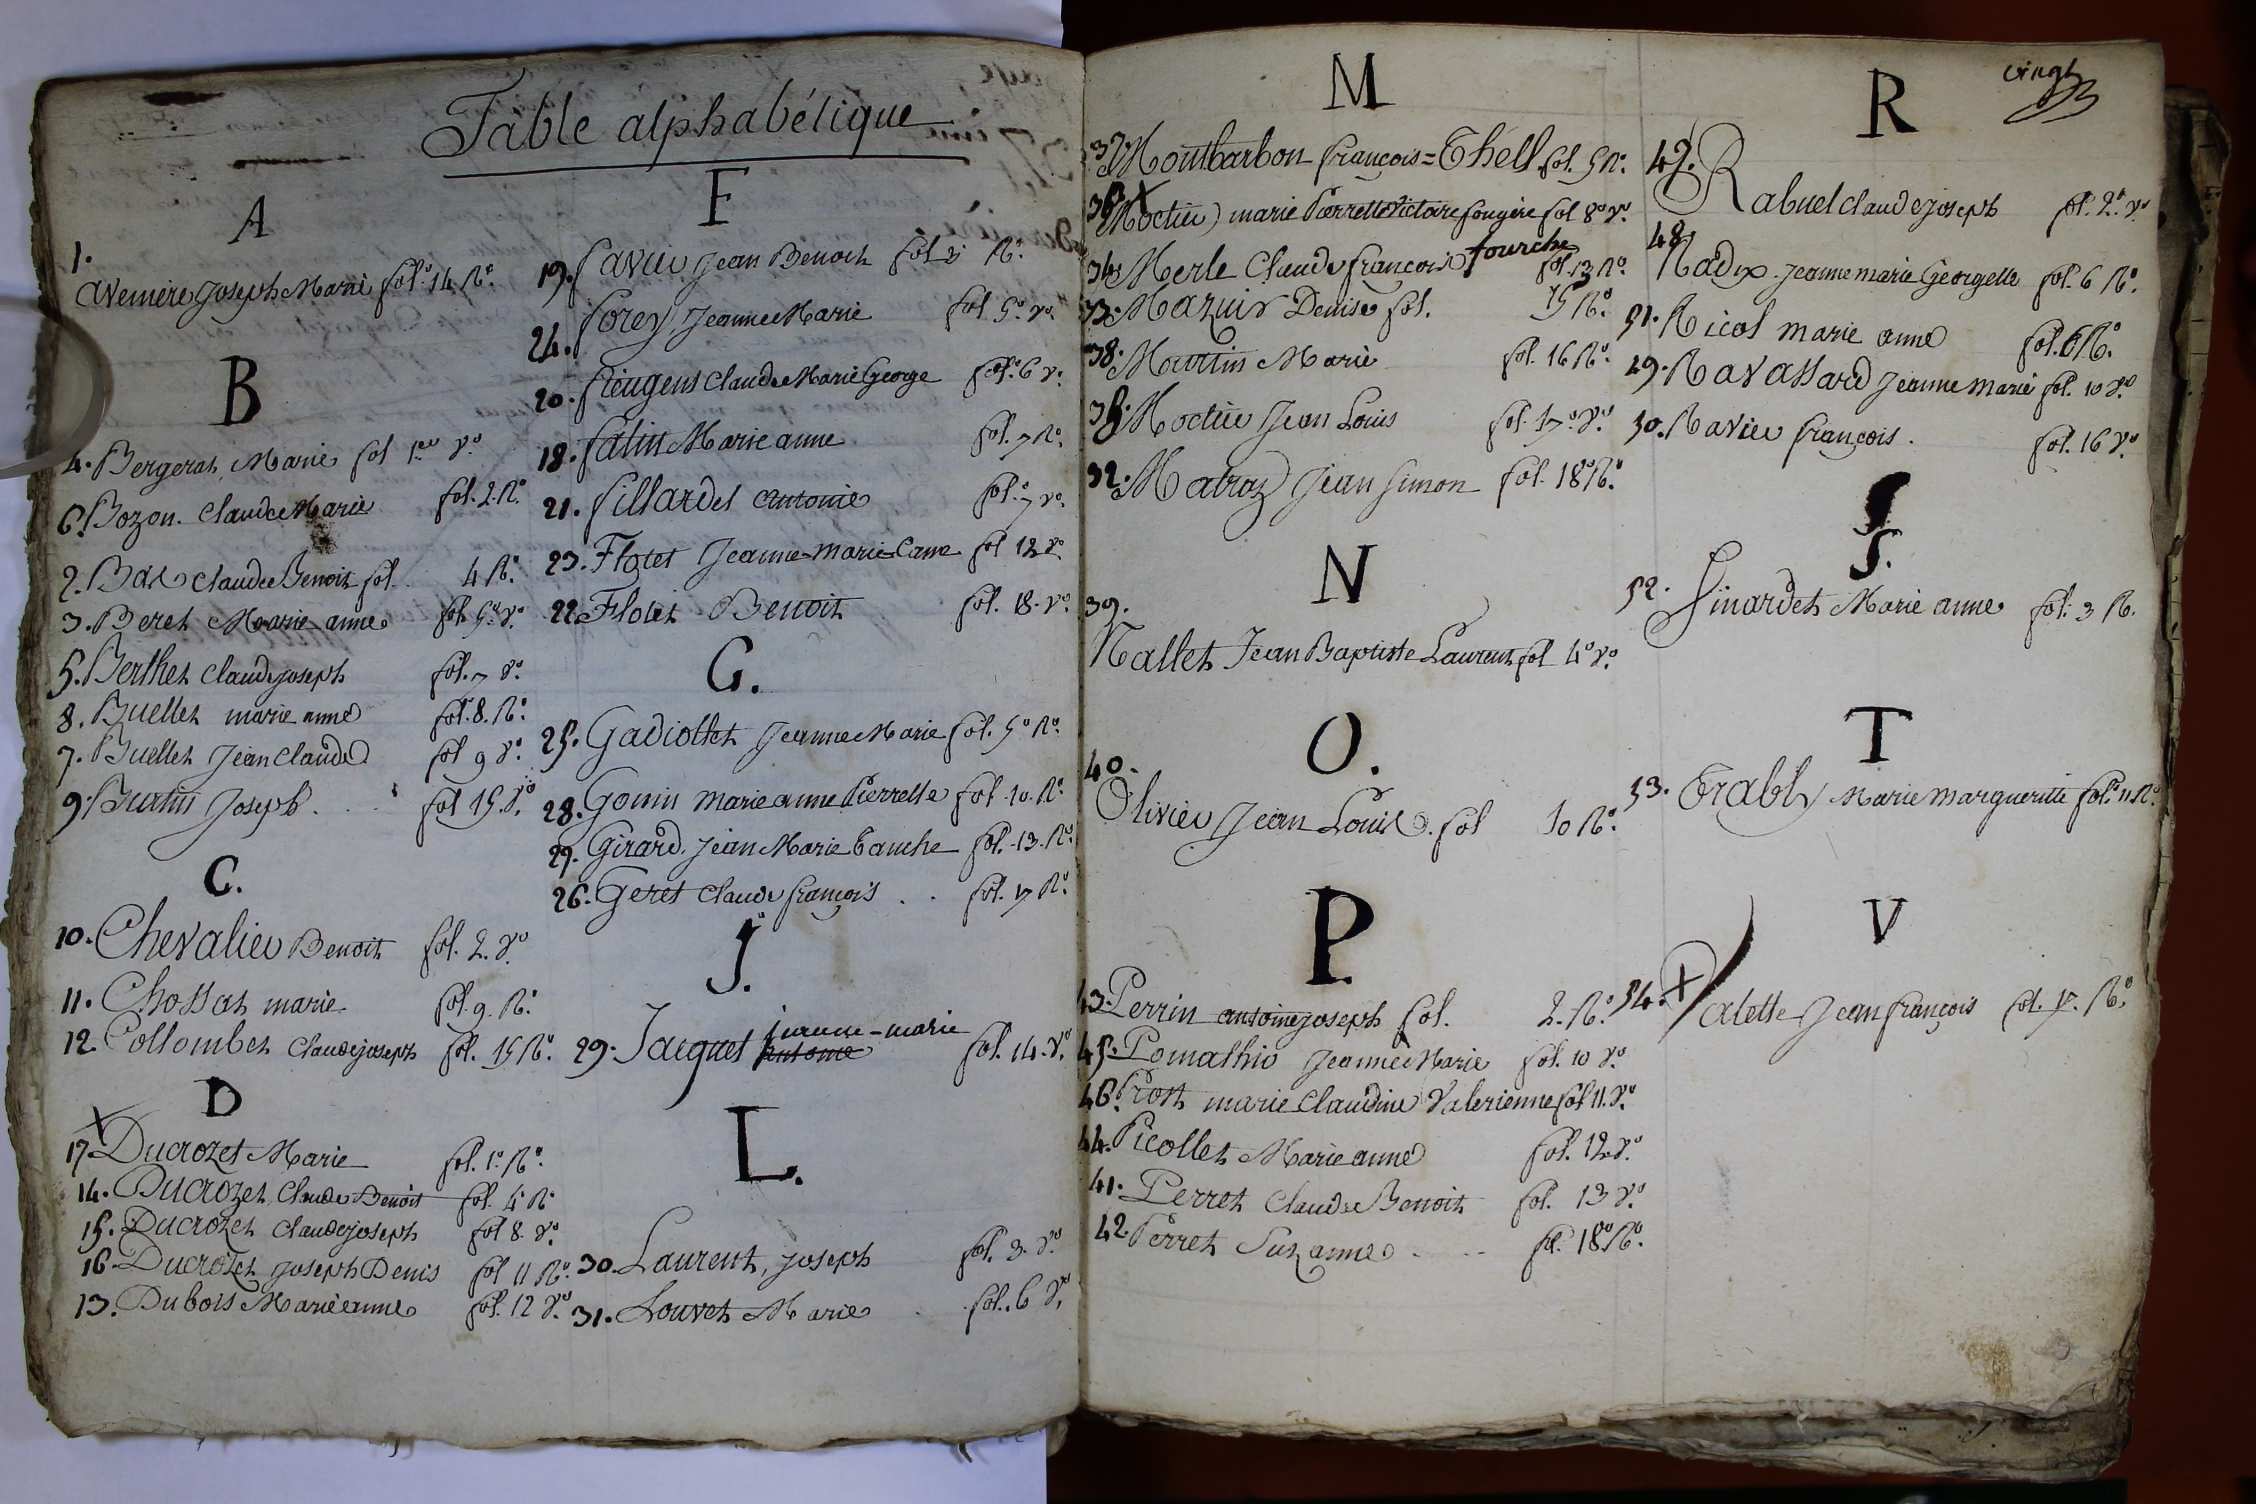 Table alphabétique
A
1.
Avemere Joseph Marie fol. 14 Ro.
B
4. Bergerat, Marie fol 1er vo
6. Bozon. Claude Marie fol. 2. Ro
2. Bas Claude Benoit fol. 4 Ro.
3. Beret Marie anne fol. 5o vo.
5. Berthet Claude joseph fol. 7 vo.
8. Buellet marie anne fol. 8. Ro.
7. Buellet Jean Claude fol 9 vo.
9. Burtin Joseph. fol 15. vo.
C.
10. Chevalier Benoit fol. 2. vo
11. Chossat marie fol. 9. Ro.
12. Collombet Claude joseph fol. 15 Ro.
D
17. Ducrozet Marie fol. 1o. Ro.
14. Ducrozet Claude Benoit fol. 4 Ro
15. Ducrozet Claude joseph fol 8. vo.
16. Ducrozet joseph Denis fol 11 Ro.
13. Dubois Marie anne fol. 12 vo.
F
19. favier Jean Benoit fol 3 Ro.
24. forey, Jeanne Marie fol 5o. vo.
20. feugens Claude Marie George fol. 6 vo.
18. falin Marie anne fol. 7 Ro.
21. fillardet antoine fol. 7 vo.
23. Flotet Jeanne-marie- fol 12 vo.
22. Flotet Benoit fol. 18. vo.
G.
25. Gadiollet Jeanne Marie fol. 5o Ro.
28. Gonin marie anne Pierrette fol. 10. Ro.
27. Girard. Jean Marie fol. 13. Ro.
26. Geret Claude françois . . fol. 17 Ro.
J.
jeanne-marie
29. Jacquet antoine fol. 14. vo.
L.
30. Laurent, joseph fol. 3. vo.
31. Louvet Marie fol. 6 vo.
vingt
M
37. Montbarbon françois= Thell fol. 5 Ro.
36. X Moctier) marie Pierrette Victoire fougère fol 8o vo.
34. Merle Claude françois fourche fol. 13 Ro.
33. Mazuir Denise fol. 15 Ro.
38. Martin Marie fol. 16 Ro.
35. Moctier Jean Louis fol. 17o. vo.
32. Matraz Jean simon fol. 18o Ro.
N
39.
Nallet Jean Baptiste Laurent fol 4o vo.
O.
40.
Olivier Jean Louis. fol 10 Ro.
P.
43. Perrin antoine joseph fol. 2. Ro.
45. Pomathio Jeanne Marie fol. 10 vo.
46. Prost marie Claudine Valerienne fol 11. vo.
44. Picollet Marie anne fol. 12 vo.
41. Perret Claude Benoit fol. 13 vo.
42. Perret Suzanne . . . fol. 18o Ro.
R
47. Rabuel Claude joseph fol. 2o vo
48. Radix Jeanne marie Georgette fol. 6 Ro.
51. Ricol marie anne fol. 6 Ro.
49. Ravassard jeanne Marie fol. 10 vo
50. Ravier françois . fol. 16 vo
S.
52. Sinardet Marie anne fol: 3 Ro.
T
53. Trably Marie Marguerite fol. 11 Ro.
V
54. X Valette Jean françois fol. 17. Ro.